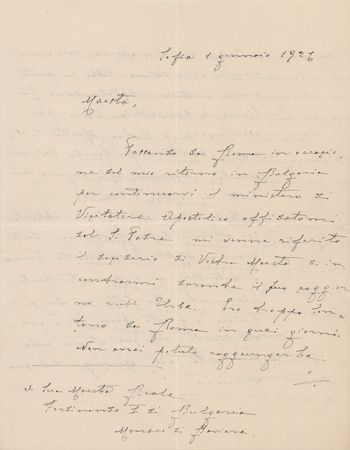 Sofia 1 gennaio 1926
Maestà,
Passando da Roma in occasio
ne del mio ritorno in Bulgaria
per continuarvi il ministero di
Visitatore Apostolico affidatomi
dal S. Padre mi venne riferito
il desiderio di Vostra Maestà di in
contrarmi durante il suo soggior
no nell' Urbe. Ero troppo lon
tano da Roma in quei giorni.
Non avrei potuto raggiungerLa
a Sua Maestà Reale
Ferdinando I di Bulgaria
Monaco di Baviera.